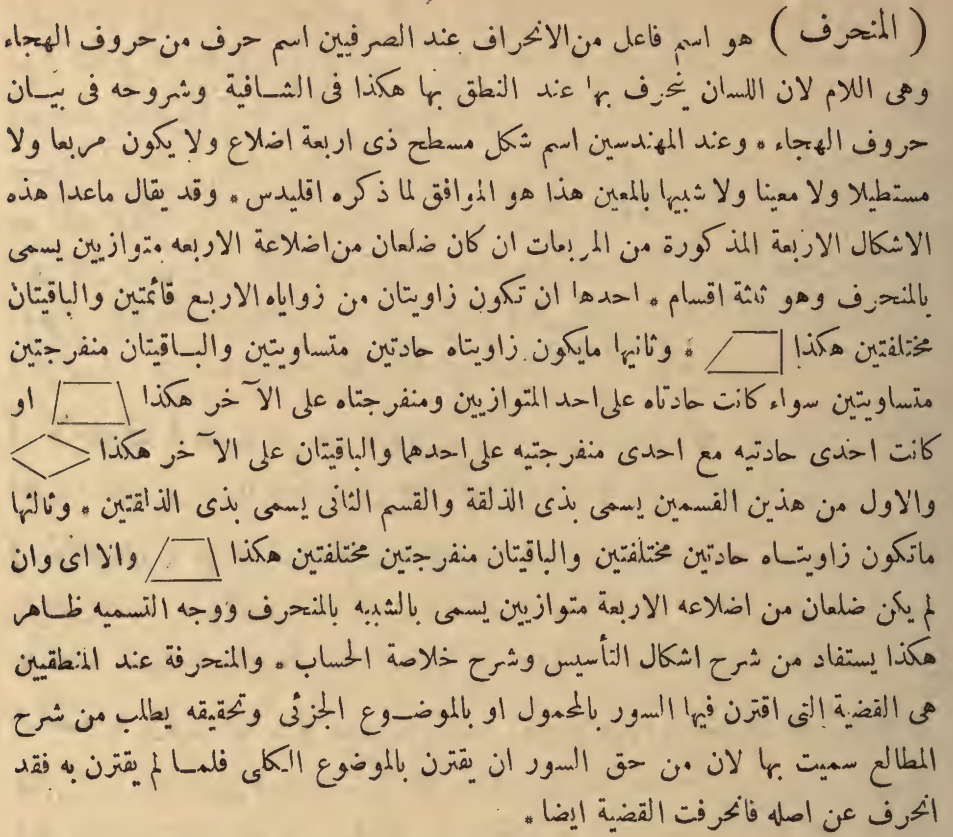 ( المنحرف ) هو اسم فاعل من الانحراف عند الصرفيين اسم حرف من حروف الهجاء
وهى اللام لان اللسان ينحرف بها عند النطق بها هكذا فى الشافية وشروحه فى بيان
حروف الهجاء * وعند المهندسين اسم شكل مسطح ذى اربعة اضلاع ولا يكون مربعا ولا
مستطيلا ولا معينا ولا شبيها بالمعين هذا هو الموافق لما ذكره اقليدس * وقد يقال ماعدا هذه
الاشكال الاربعة المذكورة من المربعات ان كان ضلعان من اضلاعة الاربعه متوازيين يسمى
بالمنحرف وهو ثلثة اقسام * احدها ان تكون زاويتان من زواياه الاربع قائمتين والباقيتان
مختلفتين هكذا * وثانيها مايكون زاويتاه حادتين متساويتين والباقيتان منفرجتين
متساويتين سواء كانت حادتاه على احد المتوازيين ومنفرجتاه على الآخر هكذا او
كانت احدى حادتيه مع احدى منفرجتيه على احدهما والباقيتان على الآخر هكذا
والاول من هذين القسمين يسمى بذى الذلقة والقسم الثانى يسمى بذى الذلقتين * وثالثها
ماتكون زاويتاه حادتين مختلفتين والباقيتان منفرجتين مختلفتين هكذا والا اى وان
لم يكن ضلعان من اضلاعه الاربعة متوازيين يسمى بالشبيه بالمنحرف ووجه التسميه ظاهر
هكذا يستفاد من شرح اشكال التأسيس وشرح خلاصة الحساب * والمنحرفة عند المنطقيين
هى القضية التى اقترن فيها السور بالمحمول او بالموضوع الجزئى وتحقيقه يطلب من شرح
المطالع سميت بها لان من حق السور ان يقترن بالموضوع الكلى فلما لم يقترن به فقد
انحرف عن اصله فانحرفت القضية ايضا *